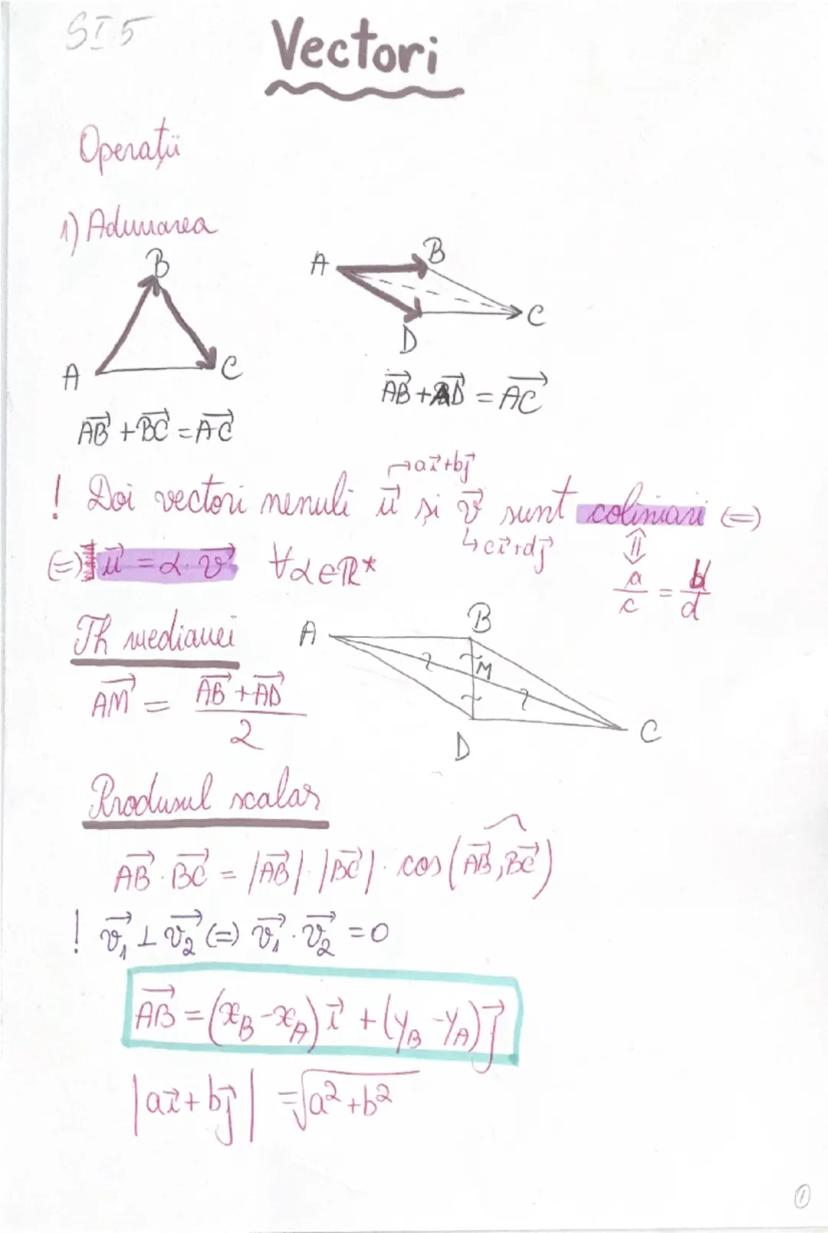 SI 5
Vectori
Operații
1) Adunarea
B
A
C
A
B
D
C
AB⃗ + BC⃗ = AC⃗
AB⃗ + AD⃗ = AC⃗
→ ai⃗+bj⃗
! Doi vectori nenuli u⃗ și v⃗ sunt coliniari (=)
↳ ci⃗+dj⃗
⇕
(=) u⃗ = α·v⃗ ∀α∈ℝ*
a/c = b/d
Th medianei
AM⃗ = (AB⃗ + AD⃗)/2
A
B
M
D
C
Produsul scalar
AB⃗ · BC⃗ = |AB⃗| · |BC⃗| · cos(AB⃗, BC⃗)
! v₁⃗ ⊥ v₂⃗ (=) v₁⃗ · v₂⃗ = 0
AB⃗ = (x_B - x_A) i⃗ + (y_B - y_A) j⃗
|ai⃗ + bj⃗| = √(a² + b²)
1